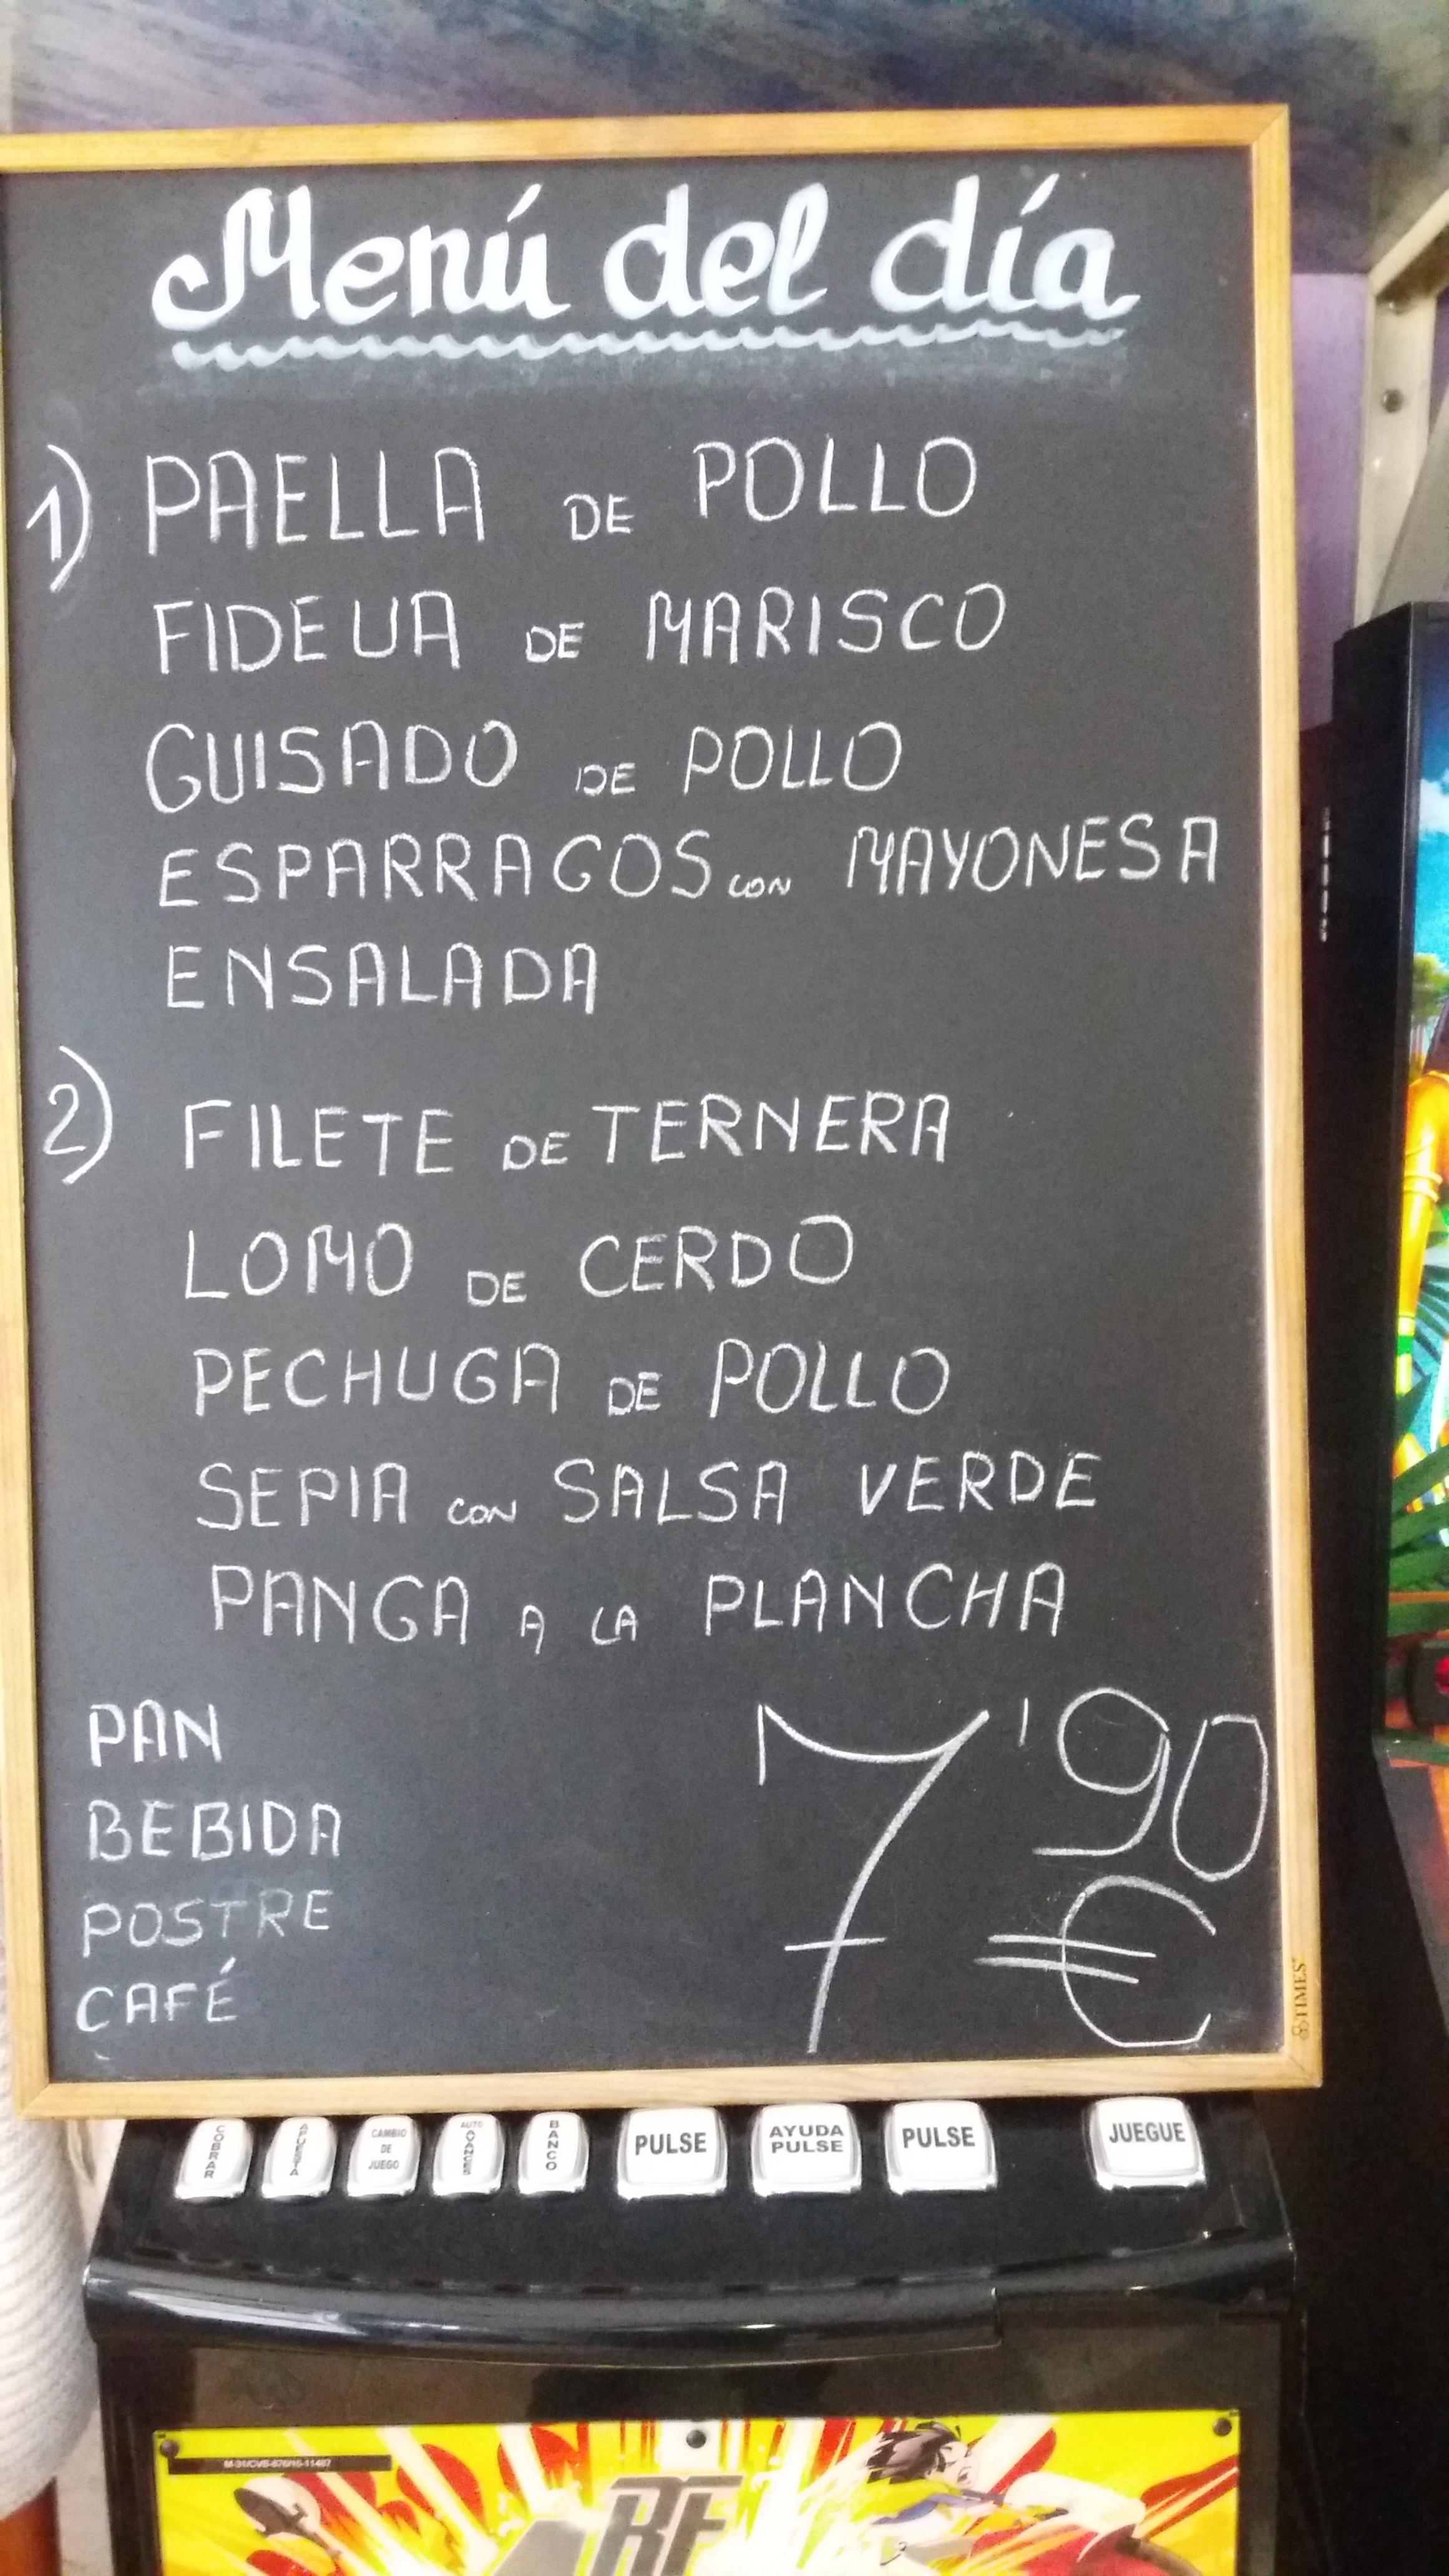 Menú del día
1) PAELLA DE POLLO
FIDEUA DE MARISCO
GUISADO DE POLLO
ESPARRAGOS CON MAYONESA
ENSALADA
2) FILETE DE TERNERA
LOMO DE CERDO
PECHUGA DE POLLO
SEPIA CON SALSA VERDE
PANGA A LA PLANCHA
PAN
BEBIDA
POSTRE
CAFÉ
7'90
€
TIMES
COBRAR
APUESTA
CAMBIO
DE
JUEGO
AUTO
AVANCES
BANCO
PULSE
AYUDA
PULSE
PULSE
JUEGUE